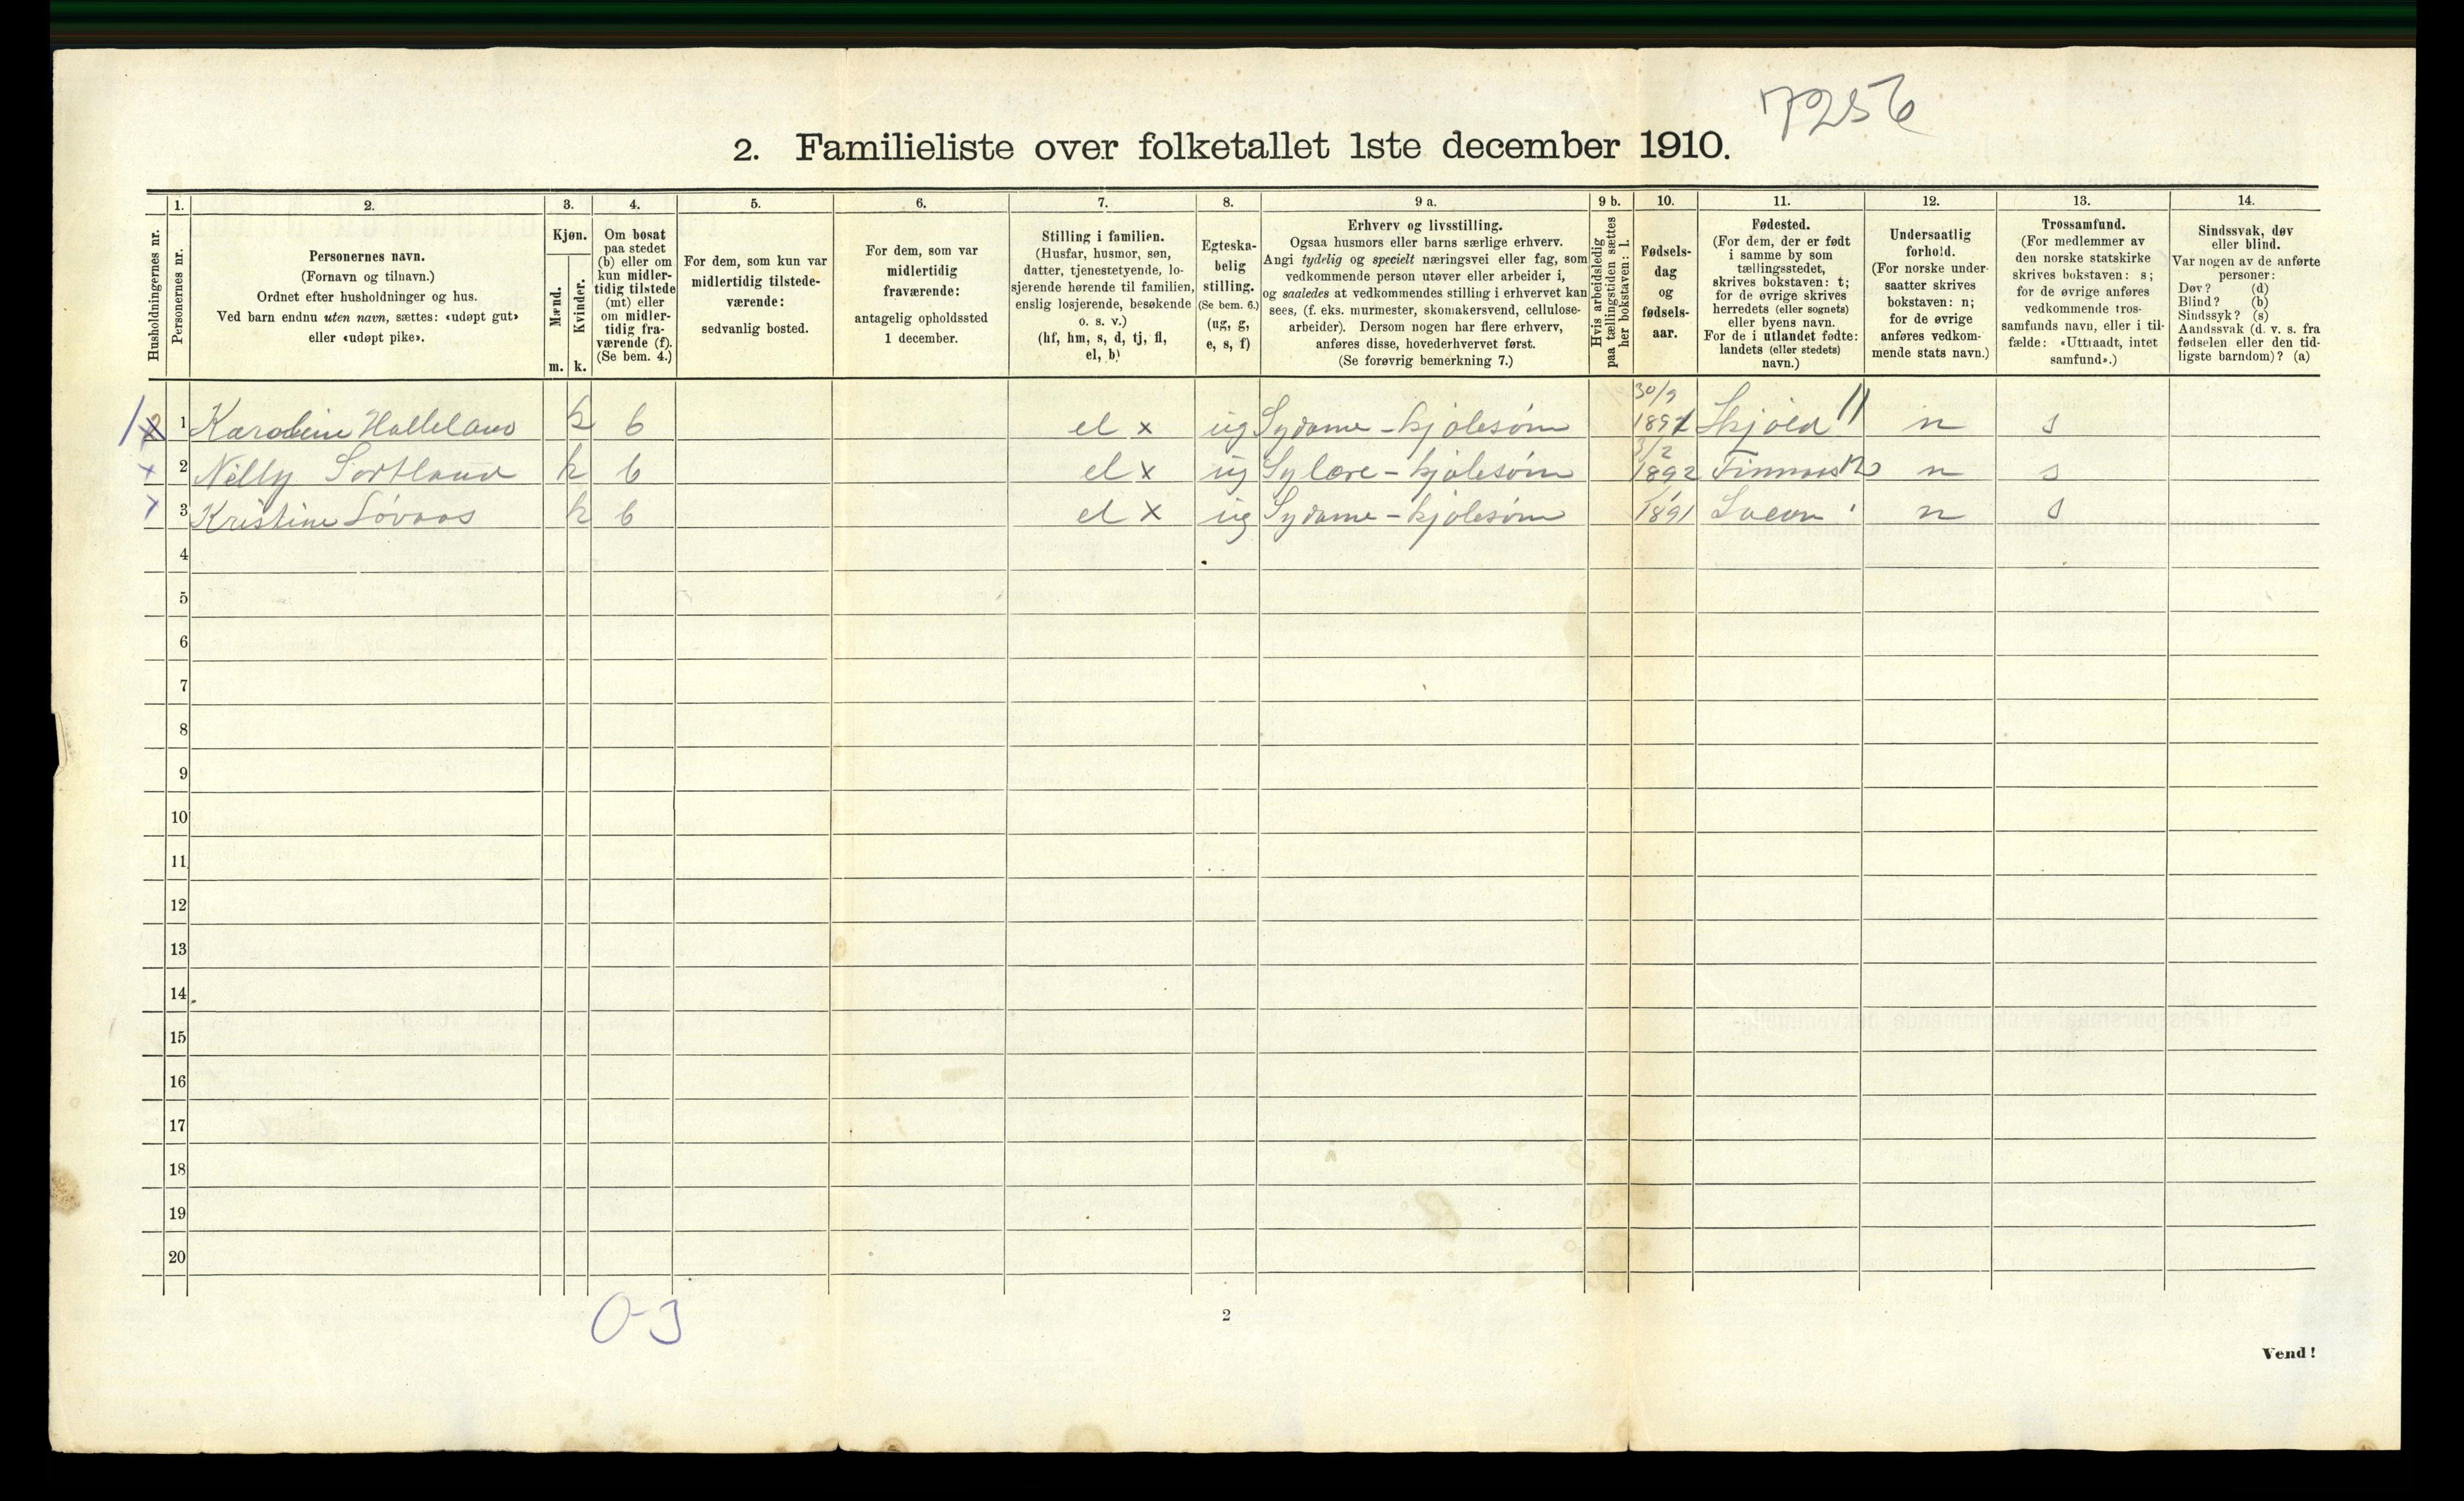 7256
2. Familieliste over folketallet 1ste december 1910.
1. 2. 3. 4. 5. 6. 7. 8. 9 a. 9 b. 10. 11. 12. 13. 14.
Husholdningernes nr.
Personernes nr.
Personernes navn.
(Fornavn og tilnavn.)
Ordnet efter husholdninger og hus.
Ved barn endnu uten navn, sættes: «udøpt gut»
eller «udøpt pike».
Kjøn.
Mænd.
Kvinder.
m. k.
Om bosat
paa stedet
(b) eller om
kun midler-
tidig tilstede
(mt) eller
om midler-
tidig fra-
værende (f).
(Se bem. 4.)
For dem, som kun var
midlertidig tilstede-
værende:
sedvanlig bosted.
For dem, som var
midlertidig
fraværende:
antagelig opholdssted
1 december.
Stilling i familien.
(Husfar, husmor, søn,
datter, tjenestetyende, lo-
sjerende hørende til familien,
enslig losjerende, besøkende
o. s. v.)
(hf, hm, s, d, tj, fl,
el, b)
Egteska-
belig
stilling.
(Se bem. 6.)
(ug, g,
e, s, f)
Erhverv og livsstilling.
Ogsaa husmors eller barns særlige erhverv.
Angi tydelig og specielt næringsvei eller fag, som
vedkommende person utøver eller arbeider i,
og saaledes at vedkommendes stilling i erhvervet kan
sees, (f. eks. murmester, skomakersvend, cellulose-
arbeider). Dersom nogen har flere erhverv,
anføres disse, hovederhvervet først.
(Se forøvrig bemerkning 7.)
Hvis arbeidsledig
paa tællingstiden sættes
her bokstaven: l.
Fødsels-
dag
og
fødsels-
aar.
Fødested.
(For dem, der er født
i samme by som
tællingsstedet,
skrives bokstaven: t;
for de øvrige skrives
herredets (eller sognets)
eller byens navn.
For de i utlandet fødte:
landets (eller stedets)
navn.)
Undersaatlig
forhold.
(For norske under-
saatter skrives
bokstaven: n;
for de øvrige
anføres vedkom-
mende stats navn.)
Trossamfund.
(For medlemmer av
den norske statskirke
skrives bokstaven: s;
for de øvrige anføres
vedkommende tros-
samfunds navn, eller i til-
fælde: «Uttraadt, intet
samfund».)
Sindssvak, døv
eller blind.
Var nogen av de anførte
personer:
Døv? (d)
Blind? (b)
Sindssyk? (s)
Aandssvak (d. v. s. fra
fødselen eller den tid-
ligste barndom)? (a)
1 Karoline Halleland k b el x ug Sydame - kjolesøm 30/9 Skjold 11 n s
2 Nelly Sortland k b el x ug Sylære - kjolesøm 3/2 1892 Finnaas 12 n s
3 Kristine Løvaas k b el x ug Sydame - kjolesøm 1891 n s
4
5
6
7
8
9
10
11
12
13
14
15
16
17
18
19
20
0-3
2
Vend!